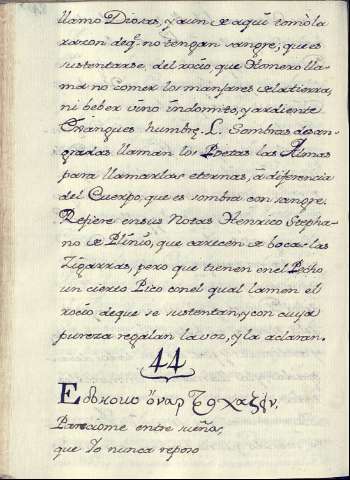 llamó Diosas, y aun de aqui tomò la
razon de q̃ no tengan sangre; que es
sustentarse, del rocio, que Homero lla-
ma no comer los manjares de la tierra,
ni beber vino indomito, y ardiente
humbre. L. Sombras desan-
gradas llaman los Poetas las Almas
para llamarlas eternas, à diferencia
del Cuerpo, que es sombra con sangre.
Refiere en sus Notas Henrico Stepha-
no de Plinio, que carecen de boca las
Zigarras, pero que tienen en el Pecho
un cierto Pico con el qual lamen el
rocio de que se sustentan, y con cuya
pureza regalan la voz, y la aclaran.
44
Εδοκουν ὄναρ
Pareciome entre sueños,
que Yo nunca reposo